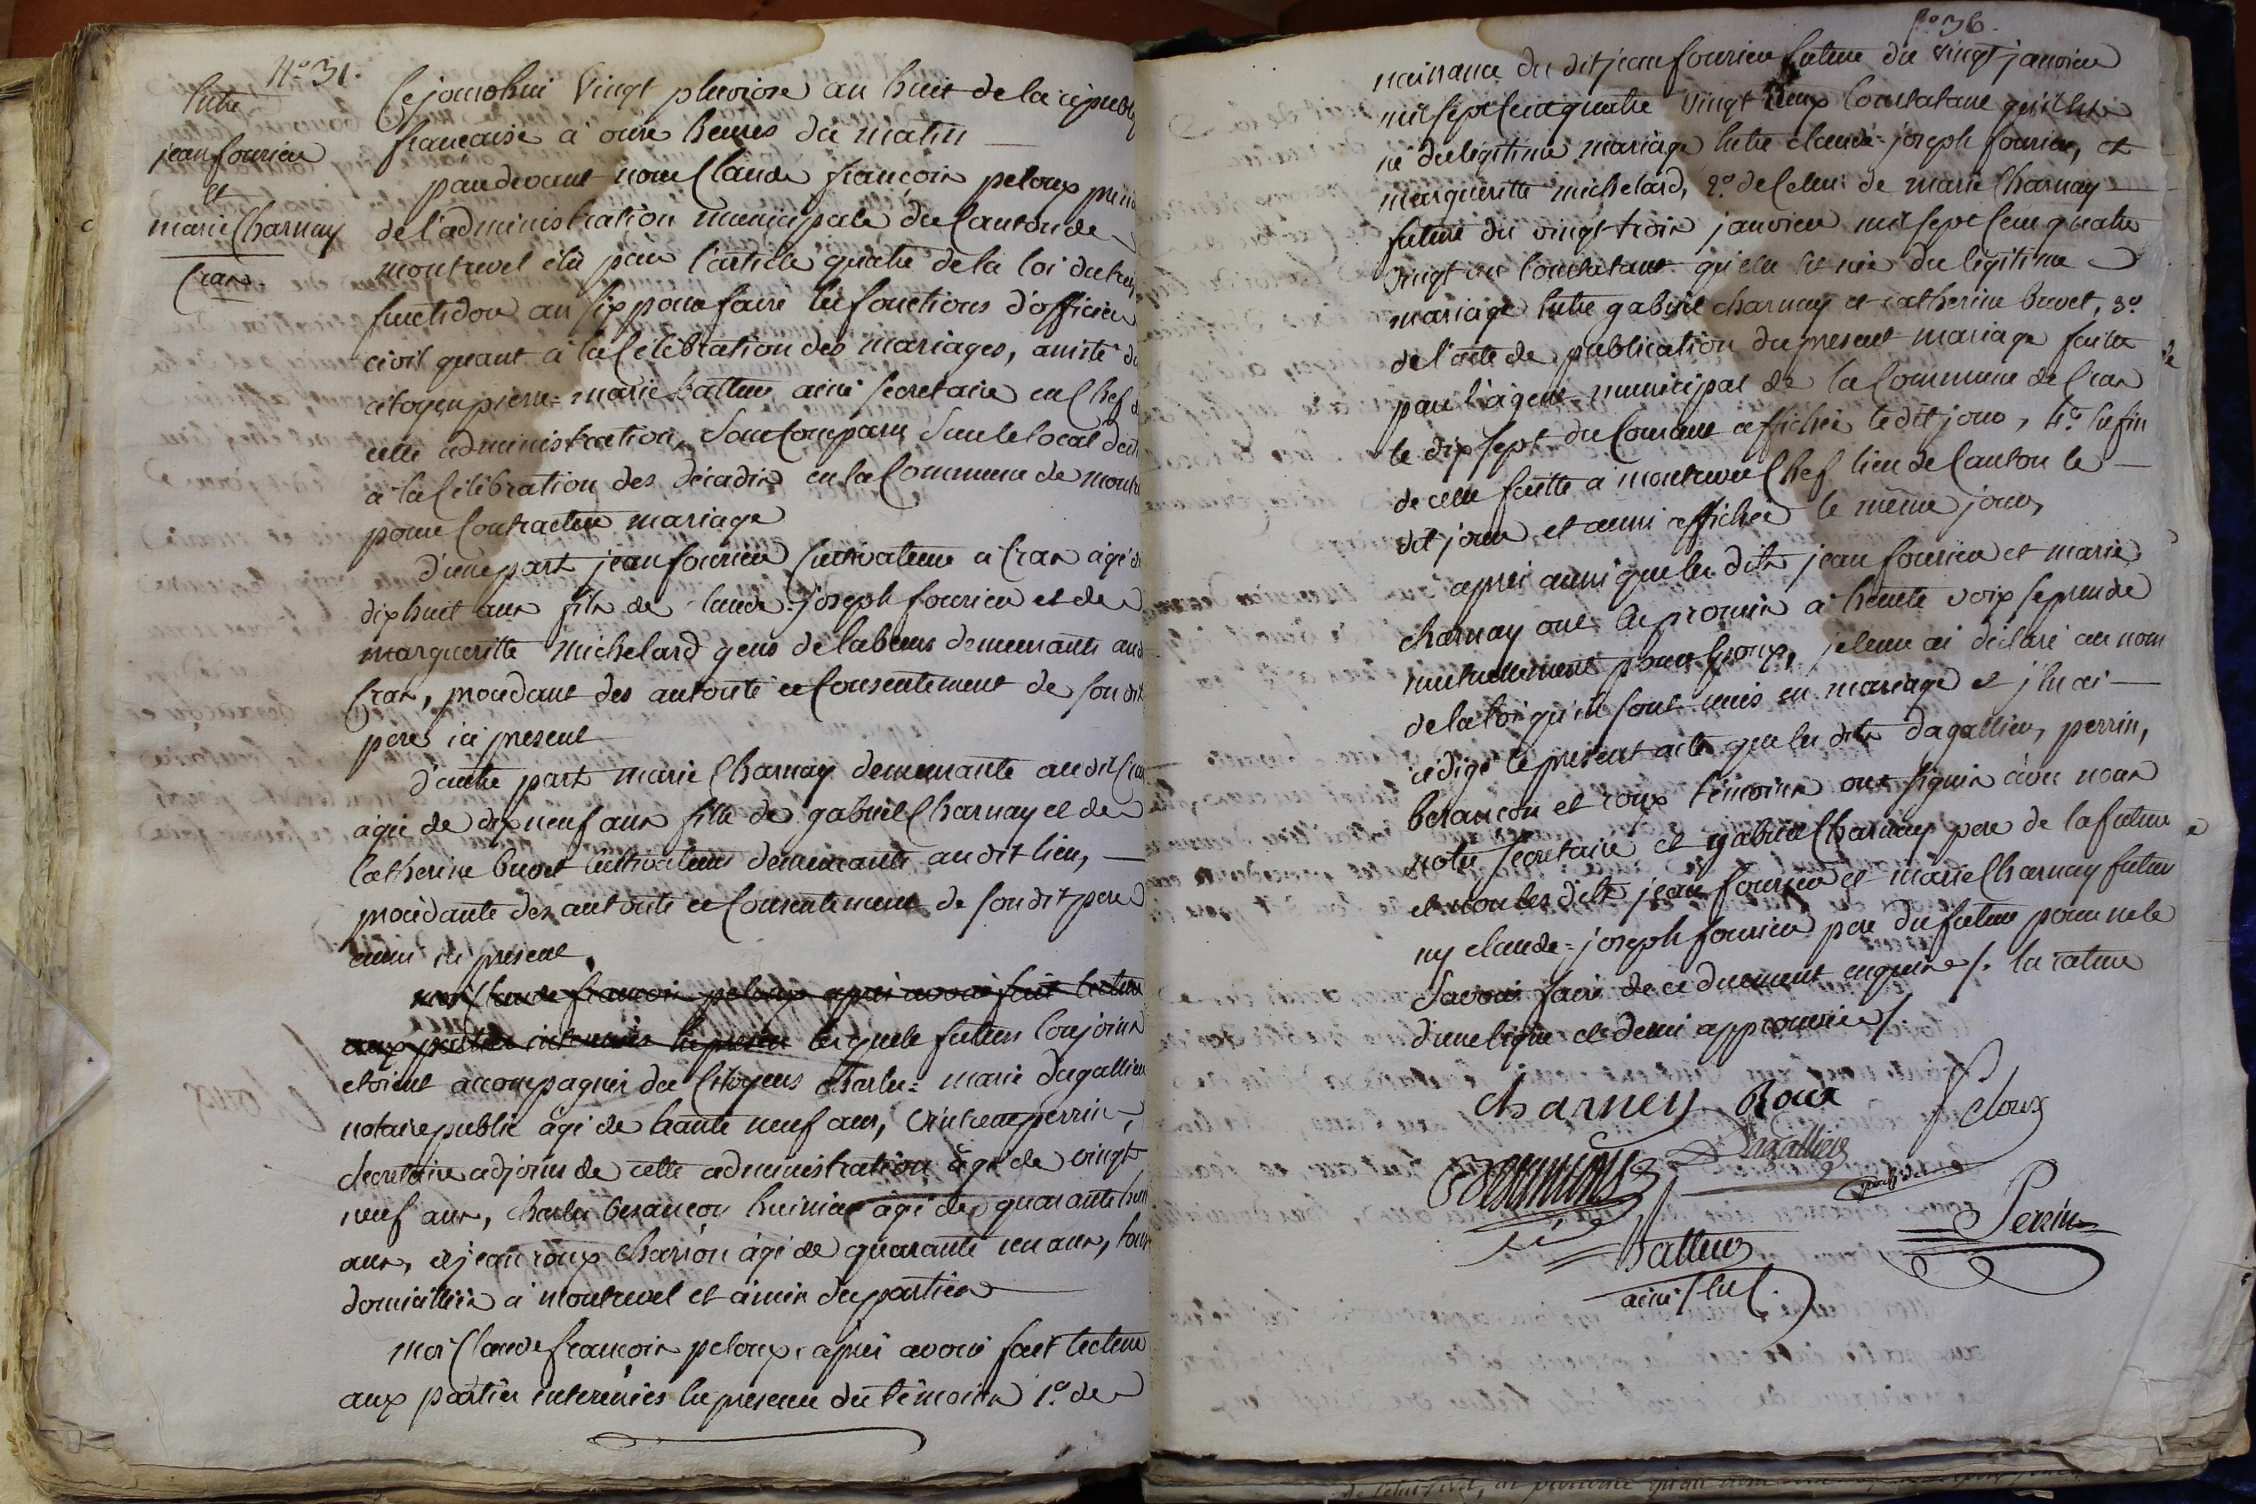 N.° 31.
Entre
jean fourier
et
marie Charnay
Cras.
Cejourdhui Vingt pluviose an huit de la republi
francaise à onze heures du matin
pardevant nous Claude françois peloux preside
de l'administration municipale du Canton de
montrevel élu par l'article quatre de la loi du treize
fructidor an six pour faire les fonctions d'officier
civil quant à la Célébration des mariages, assisté du
citoyen pierre=marie battur ainé secretaire en Chef de
cette administration, Sont Comparu Sur le local destiné
à la Célébration des décadis en la Commune de montre
pour Contracter mariage
d'une part jean fourier Cultivateur à Cras agé de
dix huit ans fils de Claude=joseph fourier et de
marguerite michelard gens de labeurs demeurants aud
Cras, procedant des autorité et Consentement de son dit
pere ici present
d'autre part marie Charnay demeurante au dit Cras
agée de dix neuf ans fille de gabriel Charnay et de
Catherine buvet Cultivateurs demeurants au dit lieu,
procédante des autorité et Consentement de son dit pere
aussi ici present,
moi Claude francois peloux apres avoir fait lecture
aux parties interessées en presence lesquels futurs Conjoints
etoient accompagnés des Citoyens Charles=marie dagallier
notaire public âgé de trante neuf ans, Vincent perrin,
Secretaire adjoint de cette administration âgé de vingt
neuf ans, Charles besançon huissier âgé de quarante huit
ans, et jean roux Charron âgé de quarante un ans, tous
domiciliés à montrevel et amis des parties
moi Claude francois peloux, après avoir fait lecture
aux parties interessées en presence des témoins 1.° de
f.° 36.
naissance du dit jean fourier futur du vingt janvier
mil sept Cent quatre vingt deux Constatant qu'il est
né du legitime mariage Entre claude=joseph fourier, et
marguerite michelard, 2.° de Celui de marie Charnay
future du vingt trois janvier mil sept Cent quatre
vingt un Constatant qu'elle est née du légitime
mariage Entre gabriel charnay et catherine buvet, 3.°
de l'acte de publication du present mariage faite
par l'agent municipal de la Commune de Cras
le dix sept du Courant affichée le dit jour, 4.° Enfin
de celle faitte à montrevel Chef lieu de Canton le
dit jour et aussi affichée le même jour,
après aussi que les dits jean fourier et marie
charnay ont Eu promis à haute voix se prendre
mutuellement pour Epoux, je leur ai déclaré au nom
de la loi qu'ils sont unis en mariage et j'En ai
rédigé le present acte que les dits dagallier, perrin,
besançon et roux témoins ont signés avec nous
notre secretaire et gabriel Charnay pere de la future
et non les dits jean fourier et marie Charnay futurs
ny claude=joseph fourier pere du futur pour ne le
Savoir faire de ce duement enquis /. la rature
d'une ligne et demi approuvée /
Charney Roux Peloux
Besançons Dagallier presid.
Battur Perrin
ainé